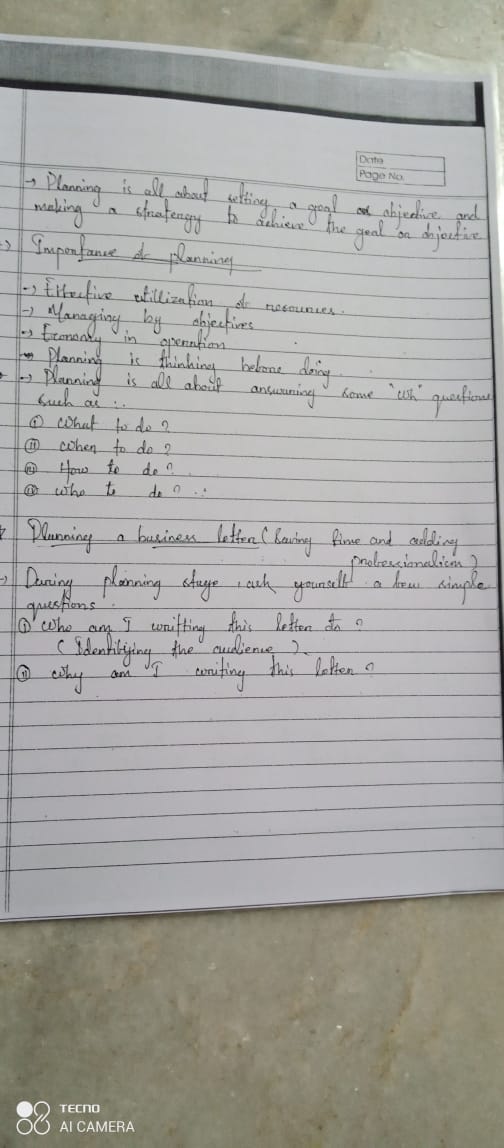 Date
Page No.
→ Planning is all about setting a goal or objective and
making a stratergy to achieve the goal or objective
→ Importance of planning
→ Effective utillization of resources.
→ Managing by objectives
→ Economy in operation
→ Planning is thinking before doing.
→ Planning is all about answering some "wh" questions
such as :.
(i) What to do ?
(ii) When to do ?
(iii) How to do ?
(iv) Who to do ? .:
Planning a business letter (Saving time and adding
professionalism)
→ During planning stage, ask yourself a few simple
questions.
(i) Who am I writting this letter to ?
(Identifying the audience).
(ii) Why am I writing this letter ?
TECNO
AI CAMERA